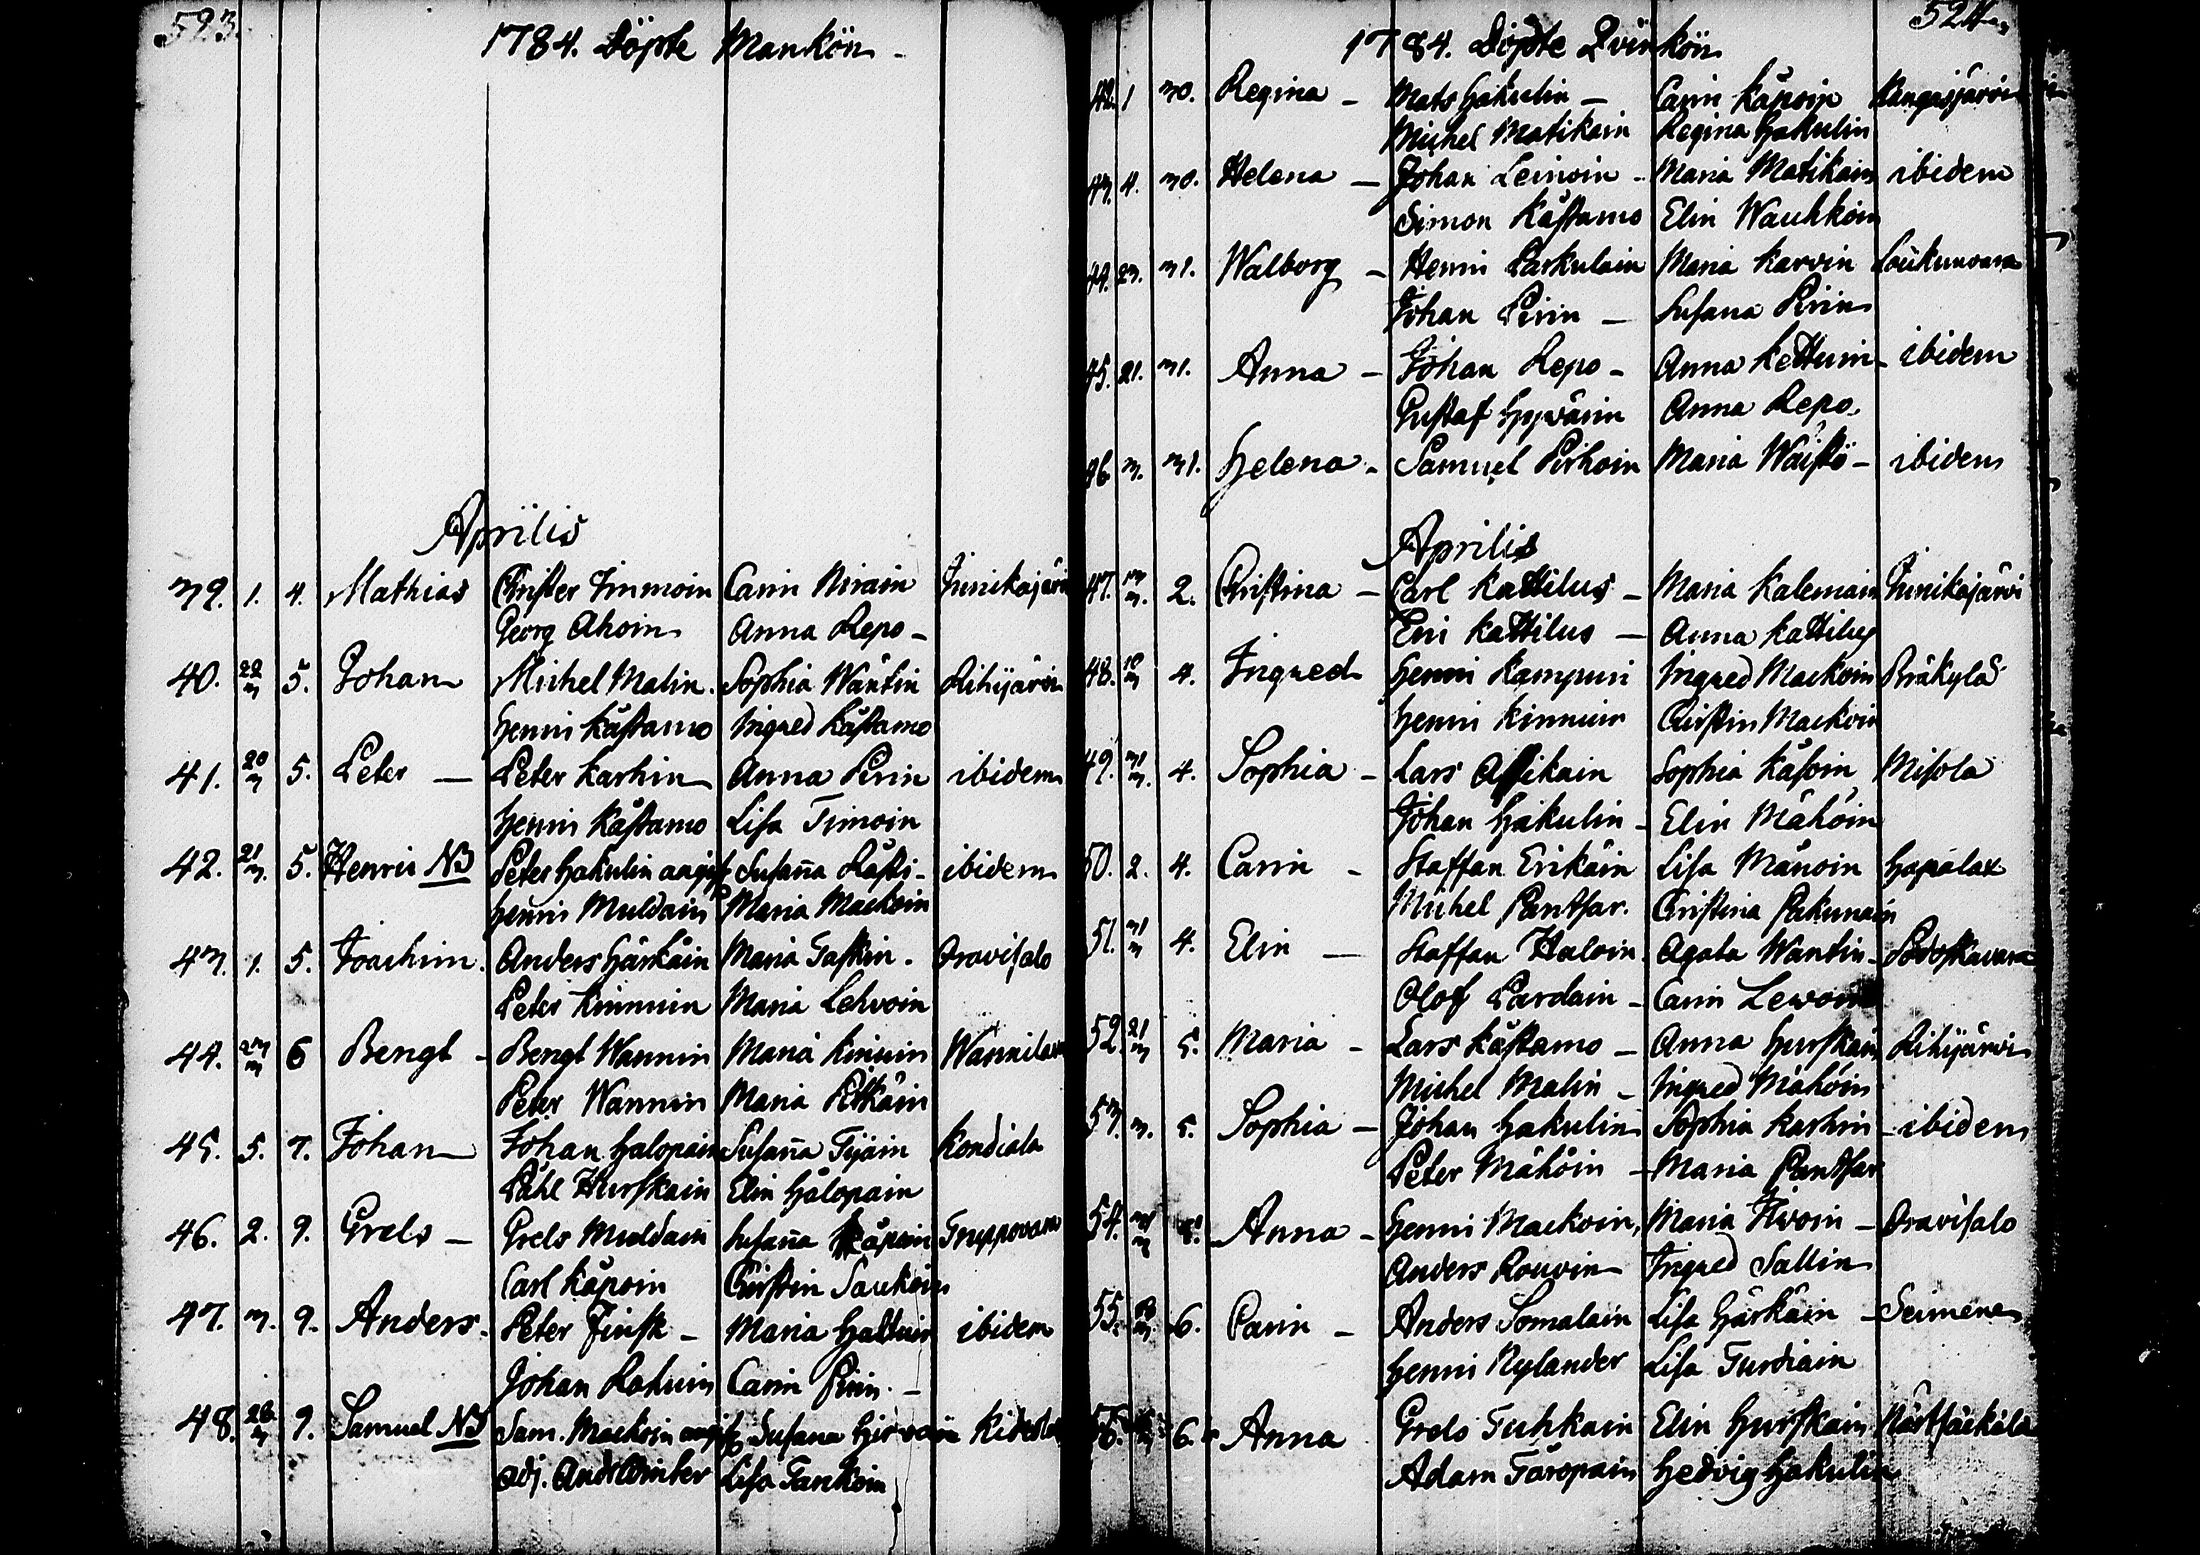 523.
1784. Döpte Mankön
Aprilis
39. 1. 4. Mathias Christer Timmoin Carin Hirvain Hinikajärvi
Georg Ahoin Anna Repo
40. 22/3 5. Johan Michel Malin Sophia Wäntin Rihijärvi
Henric Kästamo Ingred Kästamo
41. 20/3 5. Peter Peter Karhin Anna Pirin ibidem
Henric Kästamo Lisa Timoin
42. 21/3. 5. Henric NB Peter Hakulin angif. Susaña Rästi ibidem
Henric Muldain Maria Mackoin
43. 1. 5. Joachim Anders Härkäin Maria Taskin Oravisalo
Peter Kinnuin Maria Lehvoin
44. 23/3 6 Bengt Bengt Wannin Maria Kinuin
Peter Wannin Maria Pitkäin
45. 5. 7. Johan Johan Halopain Susaña Tijain Kondiala
Påhl Hurskain Elin Halopain
46. 2. 9. Grels Grels Muldain Susaña Käpoin Truppovara
Carl Käpoin Christin Saukoin
47. 3. 9. Anders. Peter Finsk Maria Haltuin ibidem
Johan Rahuin Carin Pirin
48. 26/3 9. Samuel NB Sam. Mackoin angif. Susana Hirvoin
Adj. And. Winter Lisa Tanskoin
524.
1784. Döpte Qvinkön
42. 1 30. Regina Mats Hakulin Carin Käpoin Kangasjärvi
Michel Matikain Regina Hakulin
43. 4. 30. Helena Johan Leinoin Maria Matikain ibidem
Simon Kästamo Elin Wauhkoin
44. 23. 31. Walborg Henric Parkulain Maria Karvin Loukunvara
Johan Pirin Susana Pirin
45. 21. 31. Anna Johan Repo Anna Kettuin ibidem
Gustaf Hyvärin Anna Repo
46 3. 31. Helena Samuel Pirhoin Maria Wäistö ibidem
Aprilis
47. 13/3. 2. Christina Carl Kattilus Maria Kalemain Hinikajärvi
Eric Kattilus Anna Kattilus
48. 10/3 4. Ingred Henric Kampuri Ingred Mackoin Präkylä
Henric Kinnuin Christin Mackoin
49. 31/3. 4. Sophia Lars Assikain Sophia Käsoin Misola
Johan Hakulin Elin Mähöin
50. 2. 4. Carin Staffan Erikäin Lisa Mänoin Hapalax
Michel Pantsar. Christina Pakunain
51. 31/3 4. Elin Staffan Haloin Agata Wäntin
Olof Pardain Carin
52. 21/3 5. Maria Lars Kästamo Anna Hurskain Rihijärvi
Michel Malin Ingred Mähöin
53. 3. 5. Sophia Johan Hakulin Sophia Karhin ibidem
Peter Mähöin Maria Pantsar
54. Anna Henric Mackoin, Maria Hivoin Oravisalo
Anders Rouvin Ingred Sallin
55. 6. Carin Anders Somalain Lisa Härkäin Seimene
Henric Nylander Lisa Turdiain
56. 6. Anna Grels Tuhkain Elin Hurskain Närsäckälä
Adam Taropain Hedvig Hakulin